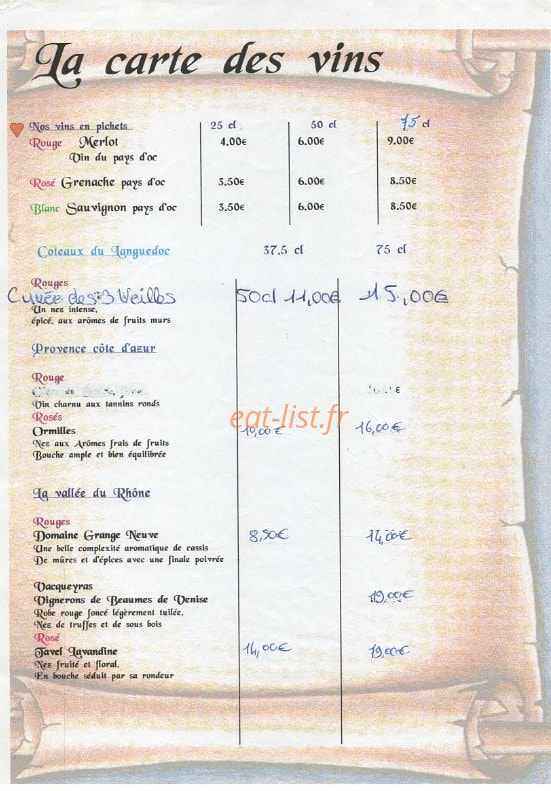 La carte des vins
Nos vins en pichets 25 cl 50 cl 75 cl
Rouge Merlot 4.00€ 6.00€ 9.00€
Vin du pays d'oc
Rosé Grenache pays d'oc 3.50€ 6.00€ 8.50€
Blanc Sauvignon pays d'oc 3.50€ 6.00€ 8.50€
Coteaux du Languedoc 37.5 cl 75 cl
Rouges
Cuvée des 3 Veilles 50cl 11,00€ 15,00€
Un nez intense,
épicé, aux arômes de fruits murs
Provence côte d'azur
Rouge
€
Vin charnu aux tannins ronds
Rosés
eat-list.fr
Ormilles 10,00€ 16,00€
Nez aux Arômes frais de fruits
Bouche ample et bien équilibrée
La vallée du Rhône
Rouges
Domaine Grange Neuve 8,50€ 14,00€
Une belle complexité aromatique de cassis
De mûres et d'épices avec une finale poivrée
Vacqueyras
Vignerons de Beaumes de Venise 19,00€
Robe rouge foncé légèrement tuilée,
Nez de truffes et de sous bois
Rosé
Tavel Lavandine 14,00€ 19,00€
Nez fruité et floral,
En bouche séduit par sa rondeur